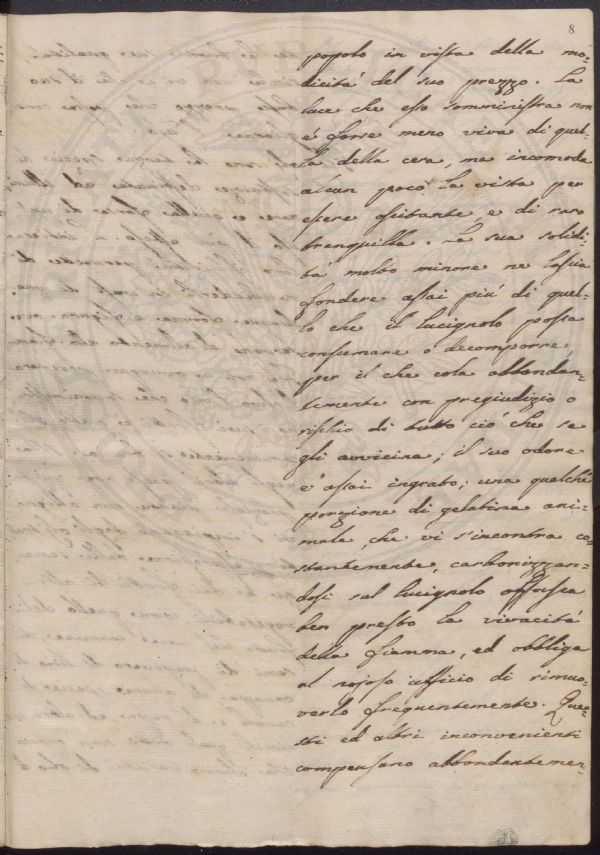 8
popolo in vista della mo-
dicità del suo prezzo. La
luce che essa somministra non
è forse meno viva di quel-
la della cera, ma incomoda
alcun poco la vista per
essere oscitante, e di raro
tranquilla. La sua solidi-
tà molto minore ne lascia
fondere assai più di quel-
lo che il lucignolo possa
consumare o decomporre
per il che cola abbondan-
temente con pregiudizio o
rischio di tutto ciò che se
gli avvicina; il suo odore
è assai ingrato; una qualche
porzione di gelatina ani-
male, che vi s'incontra co-
stantemente, carbonizzan-
dosi sul lucignolo offusca
ben presto la vivacità
della fiamma, ed obbliga
al nojoso ufficio di rimuo-
verlo frequentemente. Que-
sti ed altri inconvenienti
compensano abbondantemen-